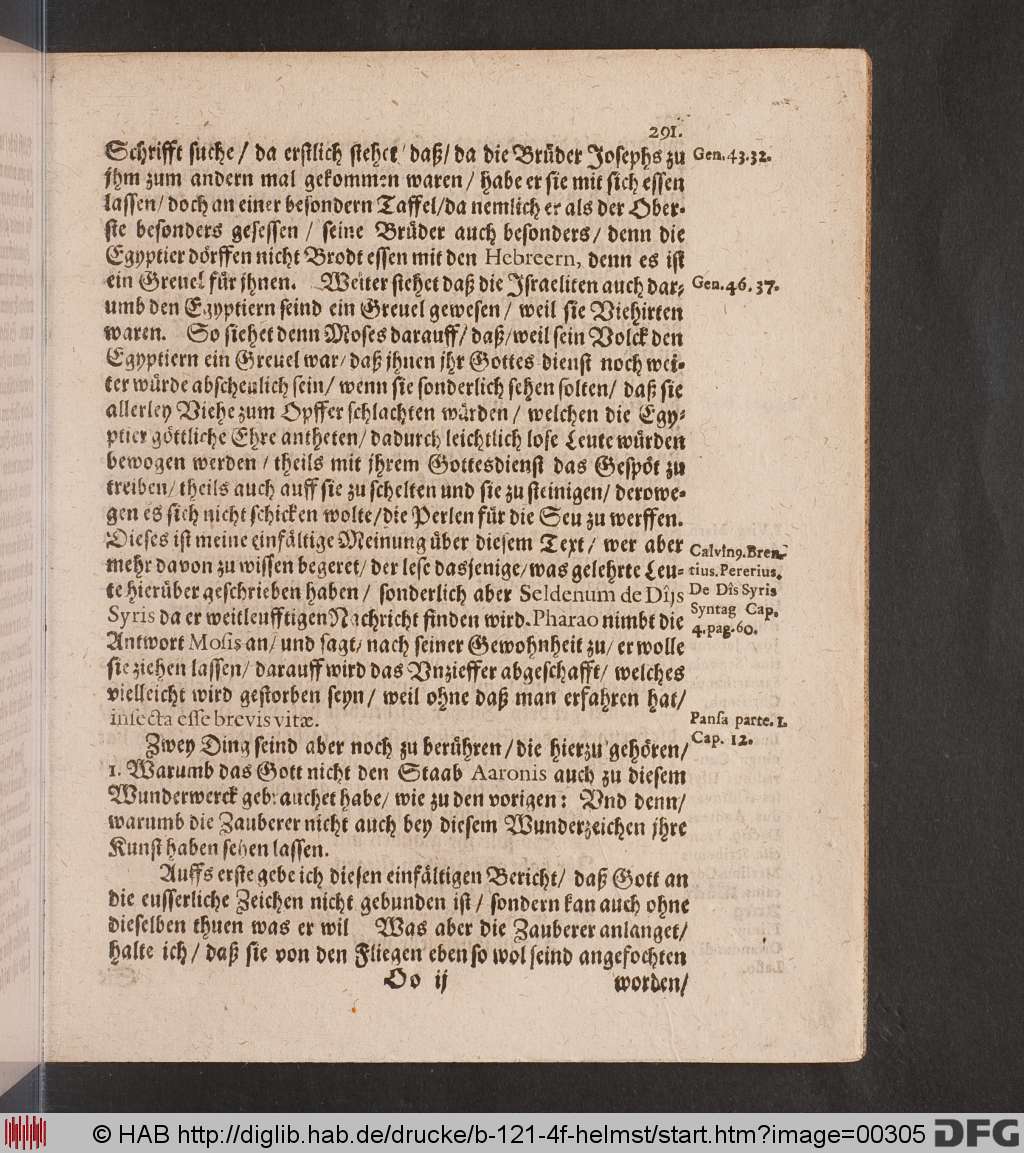 291.
Schrifft suche / da erstlich stehet / daß / da die Brüder Josephs zu
jhm zum andern mal gekommen waren / habe er sie mit sich essen
lassen / doch an einer besondern Taffel / da nemlich er als der Ober-
ste besonders gesessen / seine Brüder auch besonders / denn die
Egyptier dörffen nicht Brodt essen mit den Hebreern, denn es ist
ein Greuel für jhnen. Weiter stehet daß die Israeliten auch dar-
umb den Egyptiern seind ein Greuel gewesen / weil sie Viehirten
waren. So siehet denn Moses darauff / daß / weil sein Volck den
Egyptiern ein Greuel war / daß jhnen jhr Gottes dienst noch wei-
ter würde abscheulich sein / wenn sie sonderlich sehen solten / daß sie
allerley Viehe zum Opffer schlachten würden / welchen die Egy-
ptier göttliche Ehre antheten / dadurch leichtlich lose Leute würden
bewogen werden / theils mit jhrem Gottesdienst das Gespöt zu
treiben / theils auch auff sie zu schelten und sie zu steinigen / derowe-
gen es sich nicht schicken wolte / die Perlen für die Seu zu werffen.
Dieses ist meine einfältige Meinung über diesem Text / wer aber
mehr davon zu wissen begeret / der lese dasjenige / was gelehrte Leu-
te hierüber geschrieben haben / sonderlich aber Seldenum de Dîjs
Syris da er weitleufftigen Nachricht finden wird. Pharao nimbt die
Antwort Mosis an / und sagt / nach seiner Gewohnheit zu / er wolle
sie ziehen lassen / darauff wird das Vnzieffer abgeschafft / welches
vielleicht wird gestorben seyn / weil ohne daß man erfahren hat /
insecta esse brevis vitæ.
Zwey Ding seind aber noch zu berühren / die hierzu gehören /
1. Warumb das Gott nicht den Staab Aaronis auch zu diesem
Wunderwerck gebrauchet habe / wie zu den vorigen: Vnd denn /
warumb die Zauberer nicht auch bey diesem Wunderzeichen jhre
Kunst haben sehen lassen.
Auffs erste gebe ich diesen einfältigen Bericht / daß Gott an
die eusserliche Zeichen nicht gebunden ist / sondern kan auch ohne
dieselben thuen was er wil Was aber die Zauberer anlanget /
halte ich / daß sie von den Fliegen eben so wol seind angefochten
Oo ij worden /
Gen. 43. 32.
Gen. 46. 37.
Calvin9. Bren-
tius. Pererius.
De Dîs Syris
Syntag Cap.
4. pag. 60.
Pansa parte. 1.
Cap. 12.
© HAB http://diglib.hab.de/drucke/b-121-4f-helmst/start.htm?image=00305 DFG